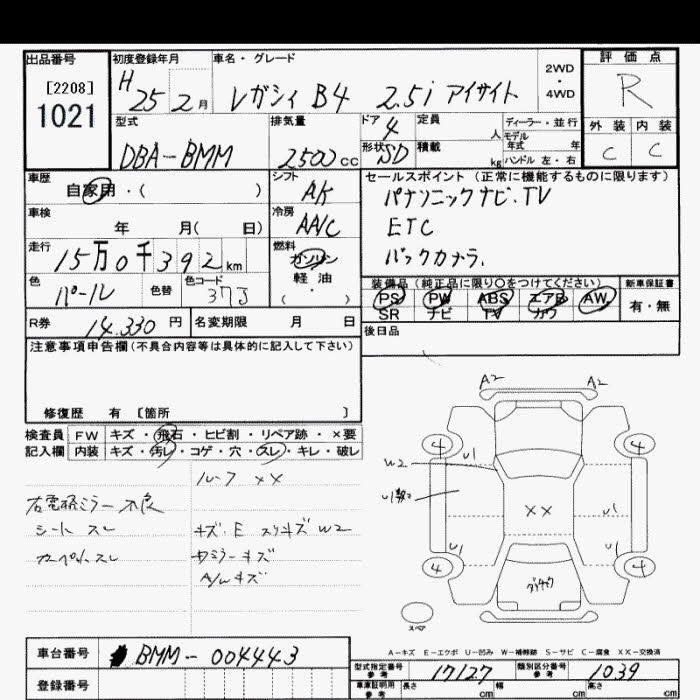 出品番号
[2208]
1021
初度登録年月
H 25 2 月
車名・グレード
レガシィ B4 2.5i アイサイト
2WD
・
4WD
評価点
R
外装 内装
C C
型式
DBA-BMM
排気量
2500 cc
ドア
4
形状 SD
定員
人
積載
kg
ディーラー・並行
モデル年式 年
ハンドル 左・右
車歴
自家用・( )
シフト
AA
車検
年 月( 日)
冷房
AA/C
走行
15万0千392 km
燃料
ガソリン
軽油
( ・ )
色
パール
色替
色コード
37J
R券
14.330 円
名変期限 月 日
セールスポイント (正常に機能するものに限ります)
パナソニックナビ.TV
ETC
バックカメラ.
装備品(純正品に限り○をつけてください)
PS PW ABS エアB AW
SR ナビ TV カワ
新車保証書
有・無
後日品
注意事項申告欄(不具合内容等は具体的に記入して下さい)
修復歴 有 [箇所 ]
検査員 FW キズ・飛石・ヒビ割・リペア跡・×要
記入欄 内装 キズ・汚レ・コゲ・穴・スレ・キレ・破レ
ルーフ ××
右電格ミラー不良
シート スレ
カーペット スレ
キズ.E スリキズ W2
サミラーキズ
A/W キズ
A2 A2
4 4
W2 U1
U1数2
××
U1
U1 U1
4 4
スペア
A-キズ E-エクボ U-凹み W-補修跡 S-サビ C-腐食 XX-交換済
車台番号
BMM-004443
登録番号
型式指定番号
参考
17127
類別区分番号
参考
1039
車庫証明用
参考
長さ cm 幅 cm 高さ cm